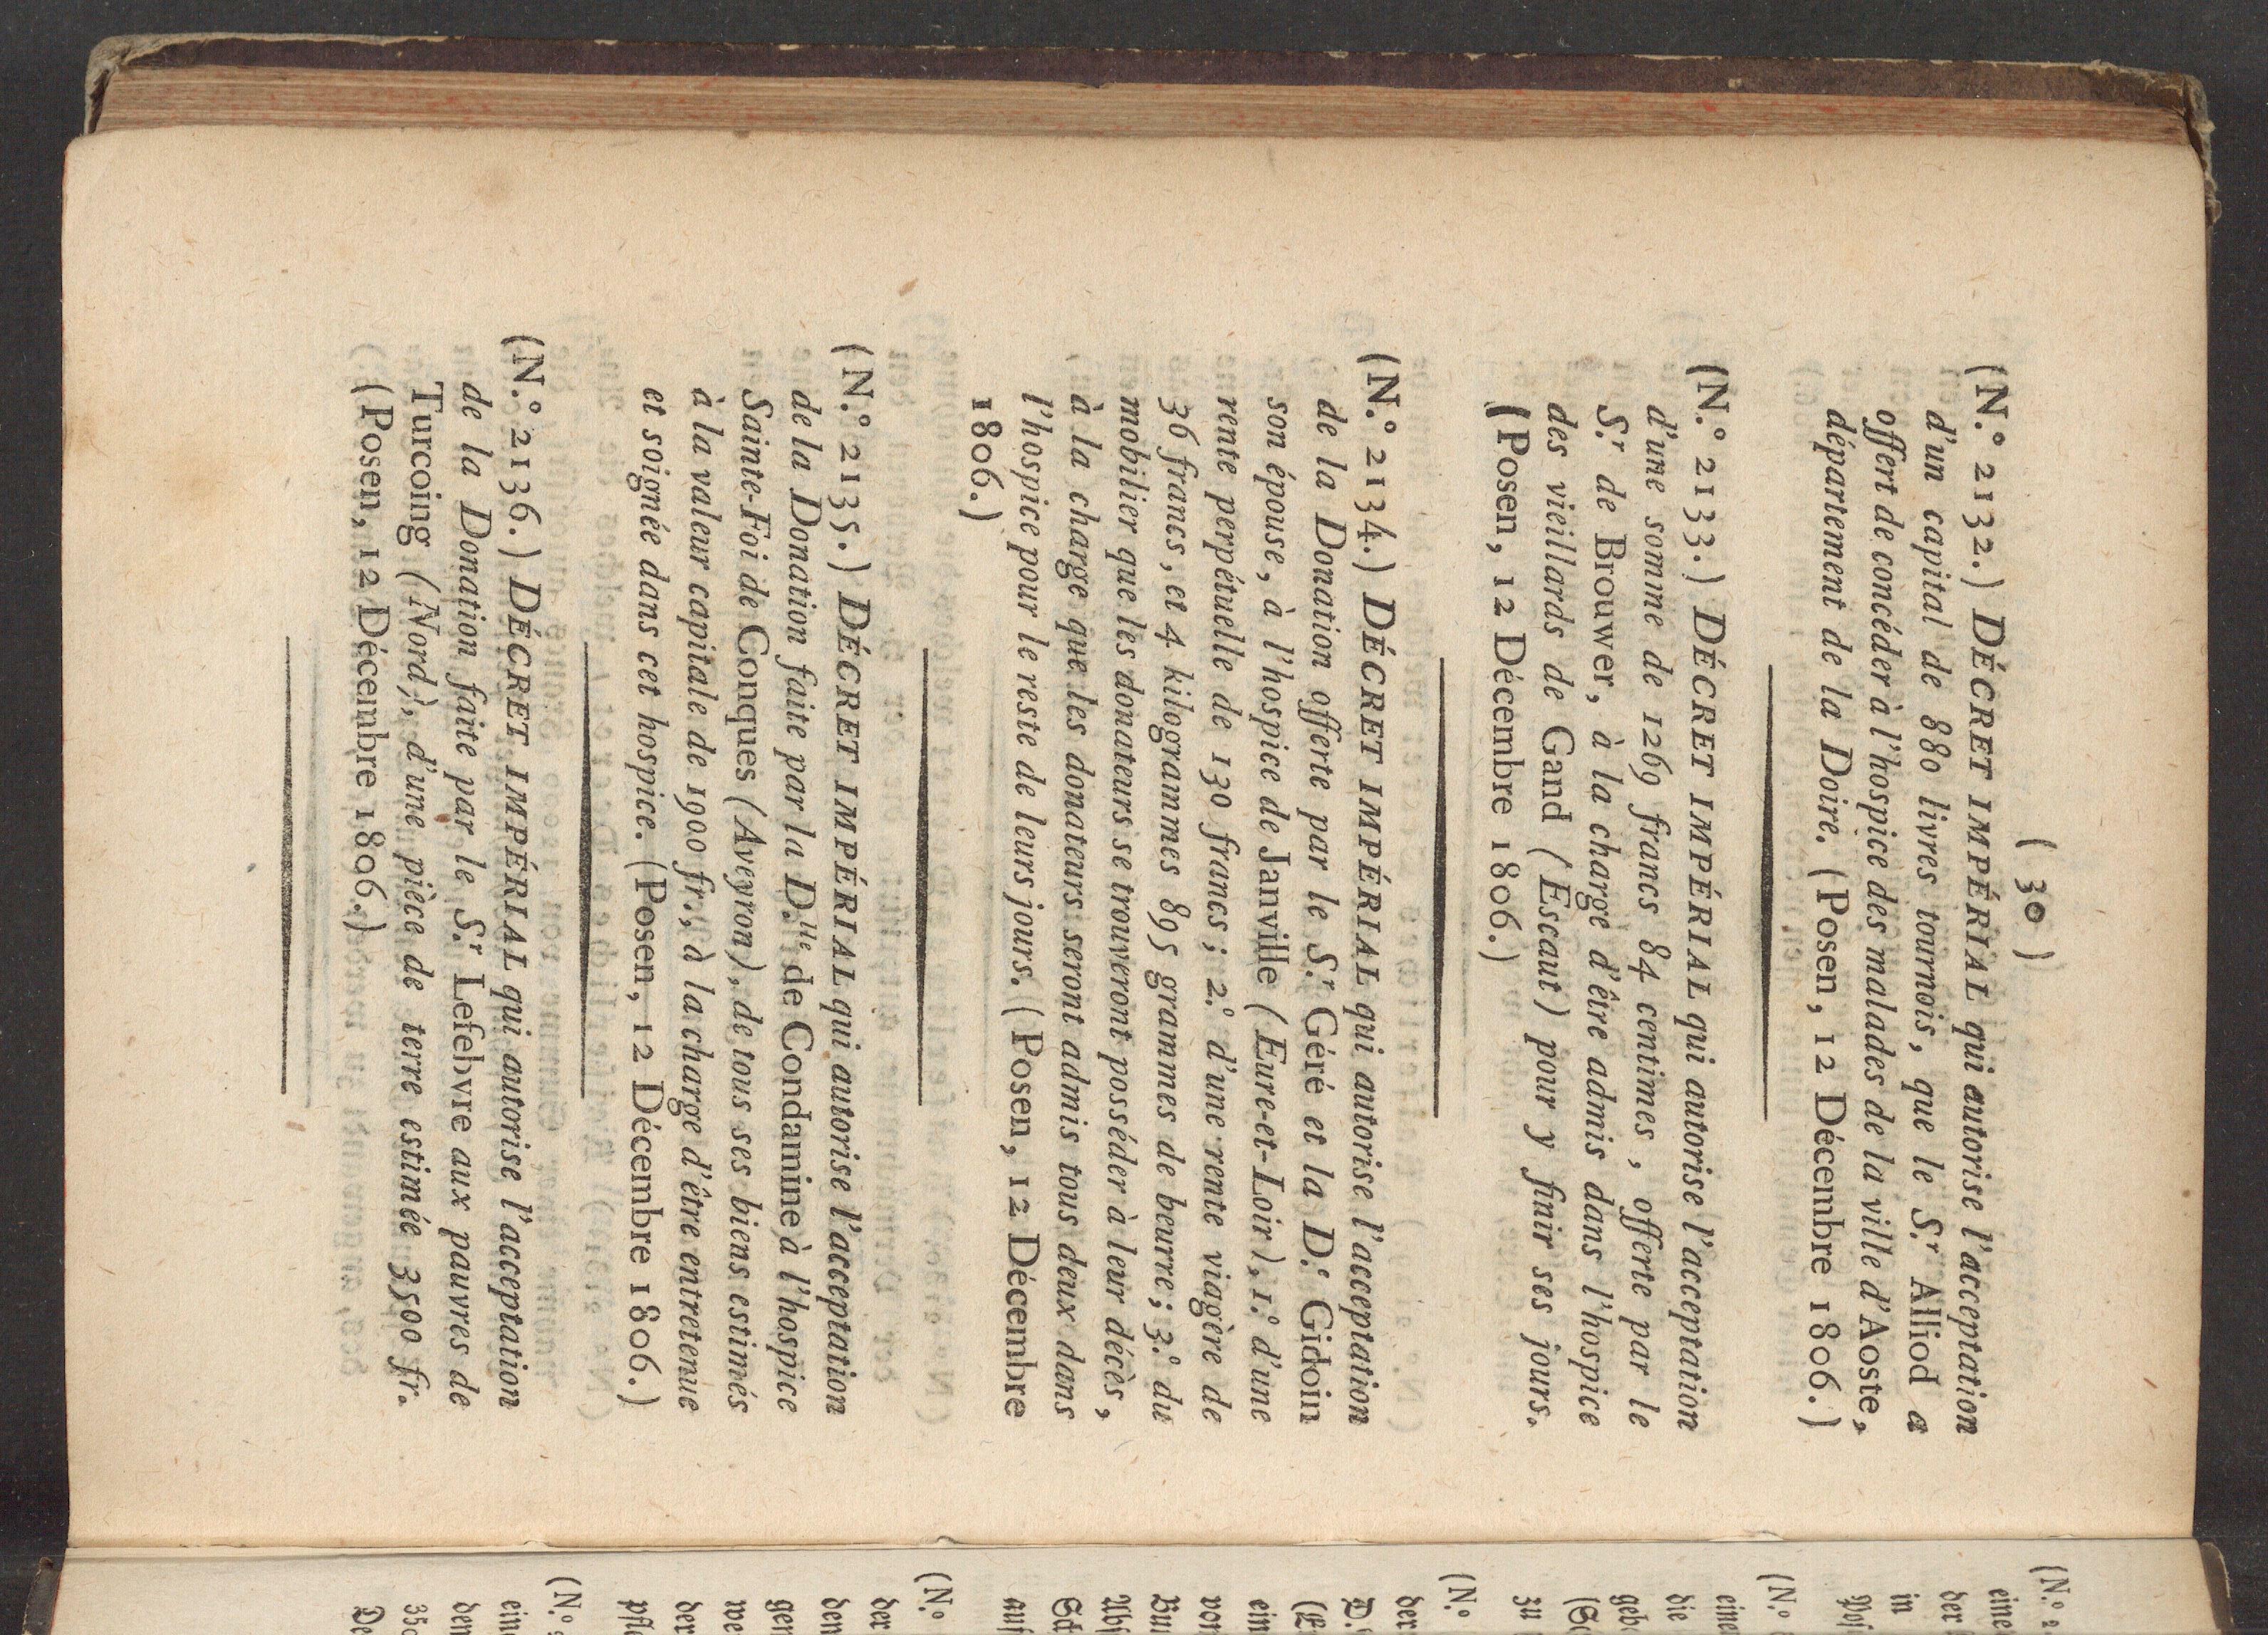 ( 30 )
(N.º 2132.) DÉCRET IMPÉRIAL qui autorise l'acceptation
d'un capital de 880 livres tournois, que le S.r Alliod a
offert de concéder à l'hospice des malades de la ville d'Aoste,
département de la Doire. (Posen, 12 Décembre 1806.)
(N.º 2133.) DÉCRET IMPÉRIAL qui autorise l'acceptation
d'une somme de 1269 francs 84 centimes, offerte par le
S.r de Brouwer, à la charge d'être admis dans l'hospice
des vieillards de Gand (Escaut) pour y finir ses jours.
(Posen, 12 Décembre 1806.)
(N.º 2134.) DÉCRET IMPÉRIAL qui autorise l'acceptation
de la Donation offerte par le S.r Géré et la D.e Gidoin
son épouse, à l'hospice de Janville (Eure-et-Loir), 1.º d'une
rente perpétuelle de 130 francs; 2.º d'une rente viagère de
36 francs, et 4 kilogrammes 895 grammes de beurre; 3.º du
mobilier que les donateurs se trouveront posséder à leur décès,
à la charge que les donateurs seront admis tous deux dans
l'hospice pour le reste de leurs jours. (Posen, 12 Décembre
1806.)
(N.º 2135.) DÉCRET IMPÉRIAL qui autorise l'acceptation
de la Donation faite par la D.lle de Condamine à l'hospice
Sainte-Foi de Conques (Aveyron), de tous ses biens estimés
à la valeur capitale de 1900 fr., à la charge d'être entretenue
et soignée dans cet hospice. (Posen, 12 Décembre 1806.)
(N.º 2136.) DÉCRET IMPÉRIAL qui autorise l'acceptation
de la Donation faite par le S.r Lefebvre aux pauvres de
Turcoing (Nord), d'une pièce de terre estimée 3500 fr.
(Posen, 12 Décembre 1806.)
(N.º
eine
der
in
(N.º
die
zu
(N.º
der
ein
von
auf
(N.º
der
den
der
(N.º
dem